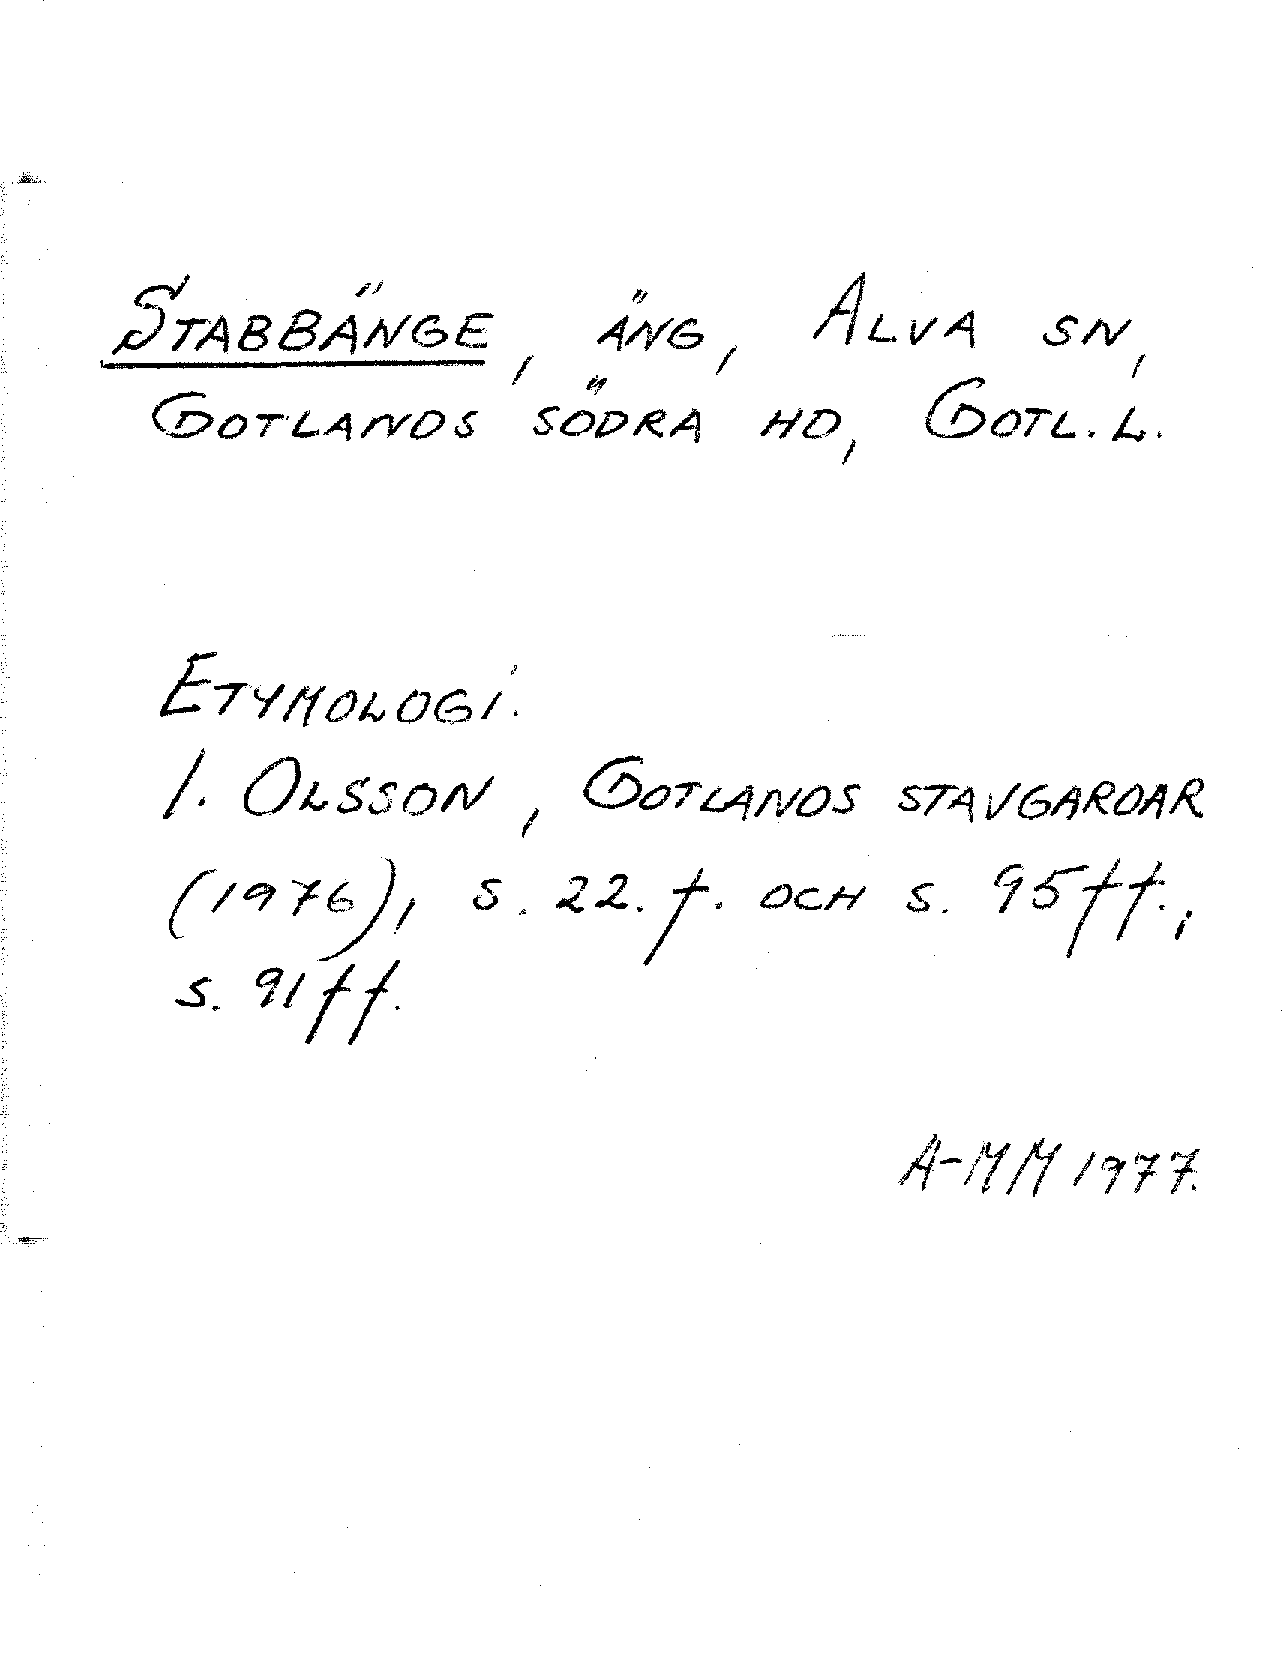 STABBÄNGE, ÄNG, ALVA SN,
GOTLANDS SÖDRA HD, GOTL. L.
ETYMOLOGI.
I. OLSSON, GOTLANDS STAVGARDAR
(1976), S. 22. f. OCH S. 95 ff.,
S. 91 ff.
A-MM 1977.